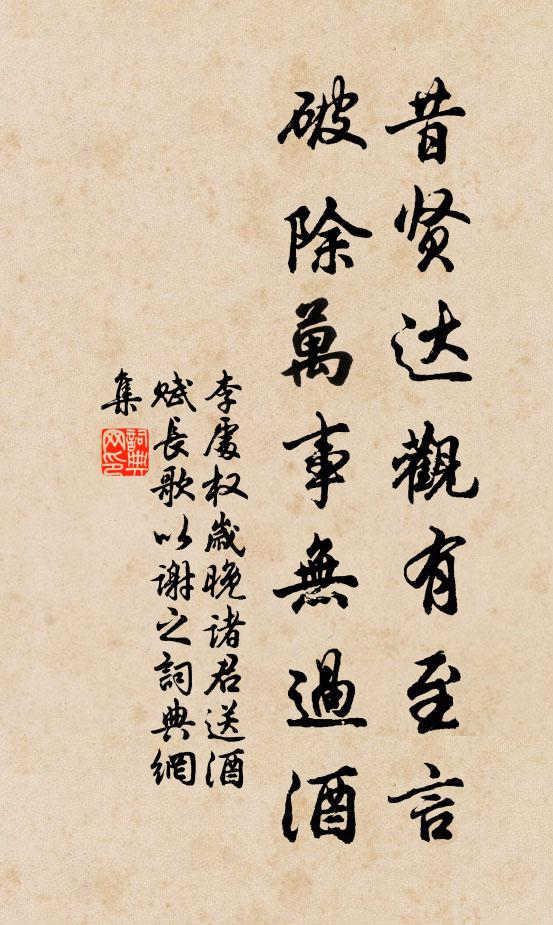 昔贤达觀有至言
破除萬事無過酒
李處权歲晚诸君送酒
赋長歌以谢之詞典網
集
詞典
网印